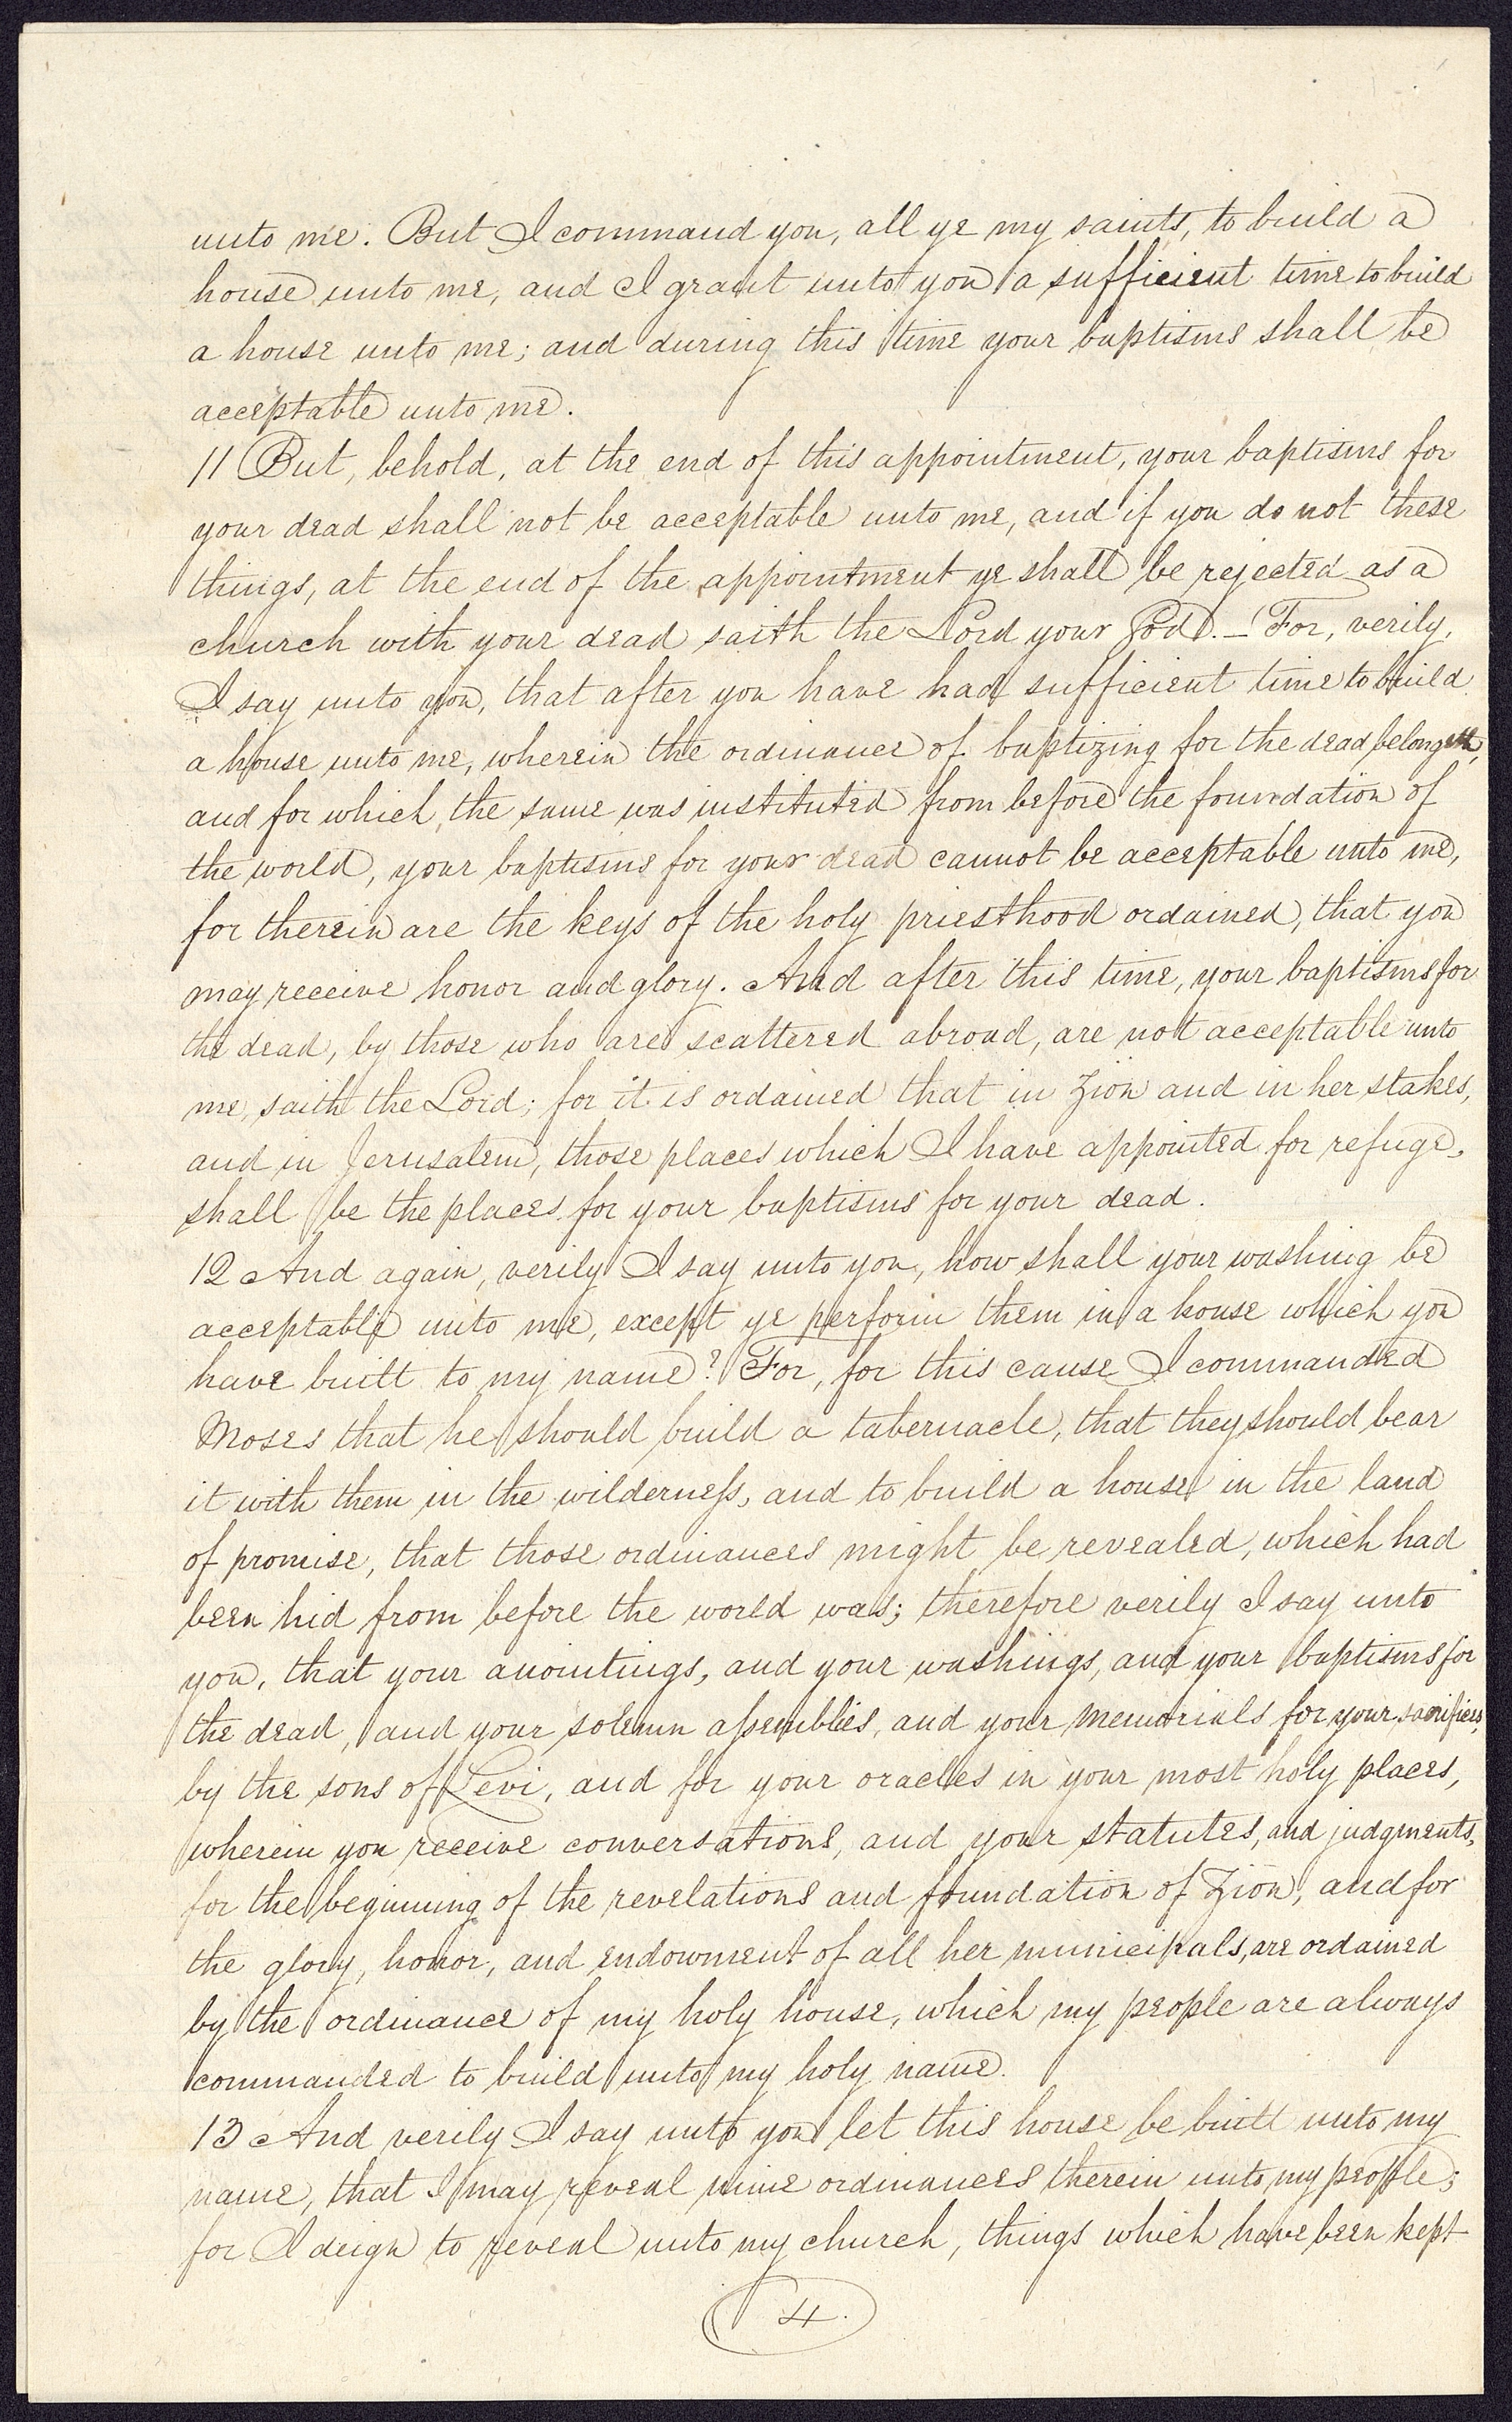 unto me. But I command you, all ye my saints, to build a
house unto me, and I grant unto you a sufficient time to build
a house unto me; and during this time your baptisms shall be
acceptable unto me.
11 But, behold, at the end of this appointment, your baptisms for
your dead shall not be acceptable unto me, and if you do not these
things, at the end of the appointment ye shall be rejected as a
church with your dead saith the Lord your God. — For, verily,
I say unto you, that after you have had sufficient time to build
a house unto me, wherein the ordinance of baptizing for the dead belongeth,
and for which the same was instituted from before the foundation of
the world, your baptisms for your dead cannot be acceptable unto me,
for therein are the keys of the holy priesthood ordained, that you
may receive honor and glory. And after this time, your baptisms for
the dead, by those who are scattered abroad, are not acceptable unto
me, saith the Lord; for it is ordained that in Zion and in her stakes,
and in Jerusalem, those places which I have appointed for refuge,
shall be the places for your baptisms for your dead.
12 And again, verily I say unto you, how shall your washing be
acceptable unto me, except ye perform them in a house which you
have built to my name? For, for this cause I commanded
Moses that he should build a tabernacle, that they should bear
it with them in the wilderness, and to build a house in the land
of promise, that those ordinances might be revealed, which had
been hid from before the world was; therefore verily I say unto
you, that your anointings, and your washings, and your baptisms for
the dead, and your solemn assemblies, and your memorials for your sacrifices,
by the sons of Levi, and for your oracles in your most holy places,
wherein you receive conversations, and your statutes, and judgments,
for the beginning of the revelations and foundation of Zion, and for
the glory, honor, and endowment of all her municipals, are ordained
by the ordinance of my holy house, which my people are always
commanded to build unto my holy name.
13 And verily I say unto you let this house be built unto my
name, that I may reveal mine ordinances therein unto my people;
for I deign to reveal unto my church, things which have been kept
4.